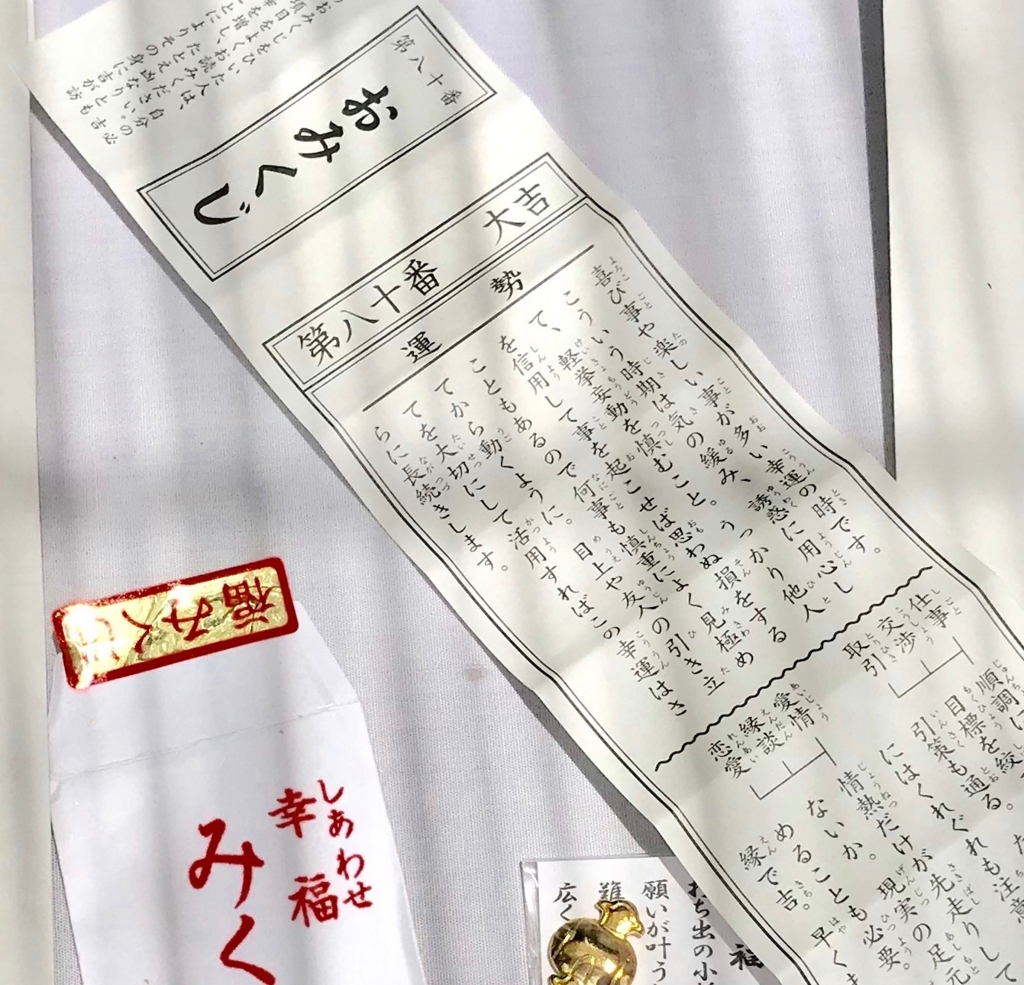 おみくじをひいた人は、自分の
項目をよくお読みください。必
幸を増し、たとえ凶なりとも吉
ことによりその身に吉が訪
第八十番
おみくじ
第八十番　大吉
運勢
喜び事や楽しい事が多い幸運の時です。
こういう時期は気の緩み、誘惑に用心し
て、軽挙妄動を慎むこと。うっかり他人
を信用して事を起こせば思わぬ損をする
こともあるので何事も慎重によく見極め
てから動くように。目上や友人の引き立
てを大切にして活用すればこの幸運はさ
らに長続きします。
仕事
交渉
取引
順調に
目標を絞
引策も通る。
にはくれぐれも注意
愛情
縁談
恋愛
情熱だけが先走りして
ないか。現実の足元
めることも必要。
縁で吉。早くま
福みくじ
しあわせ
幸福
みく
福
打ち出の小
願いが叶う
広く